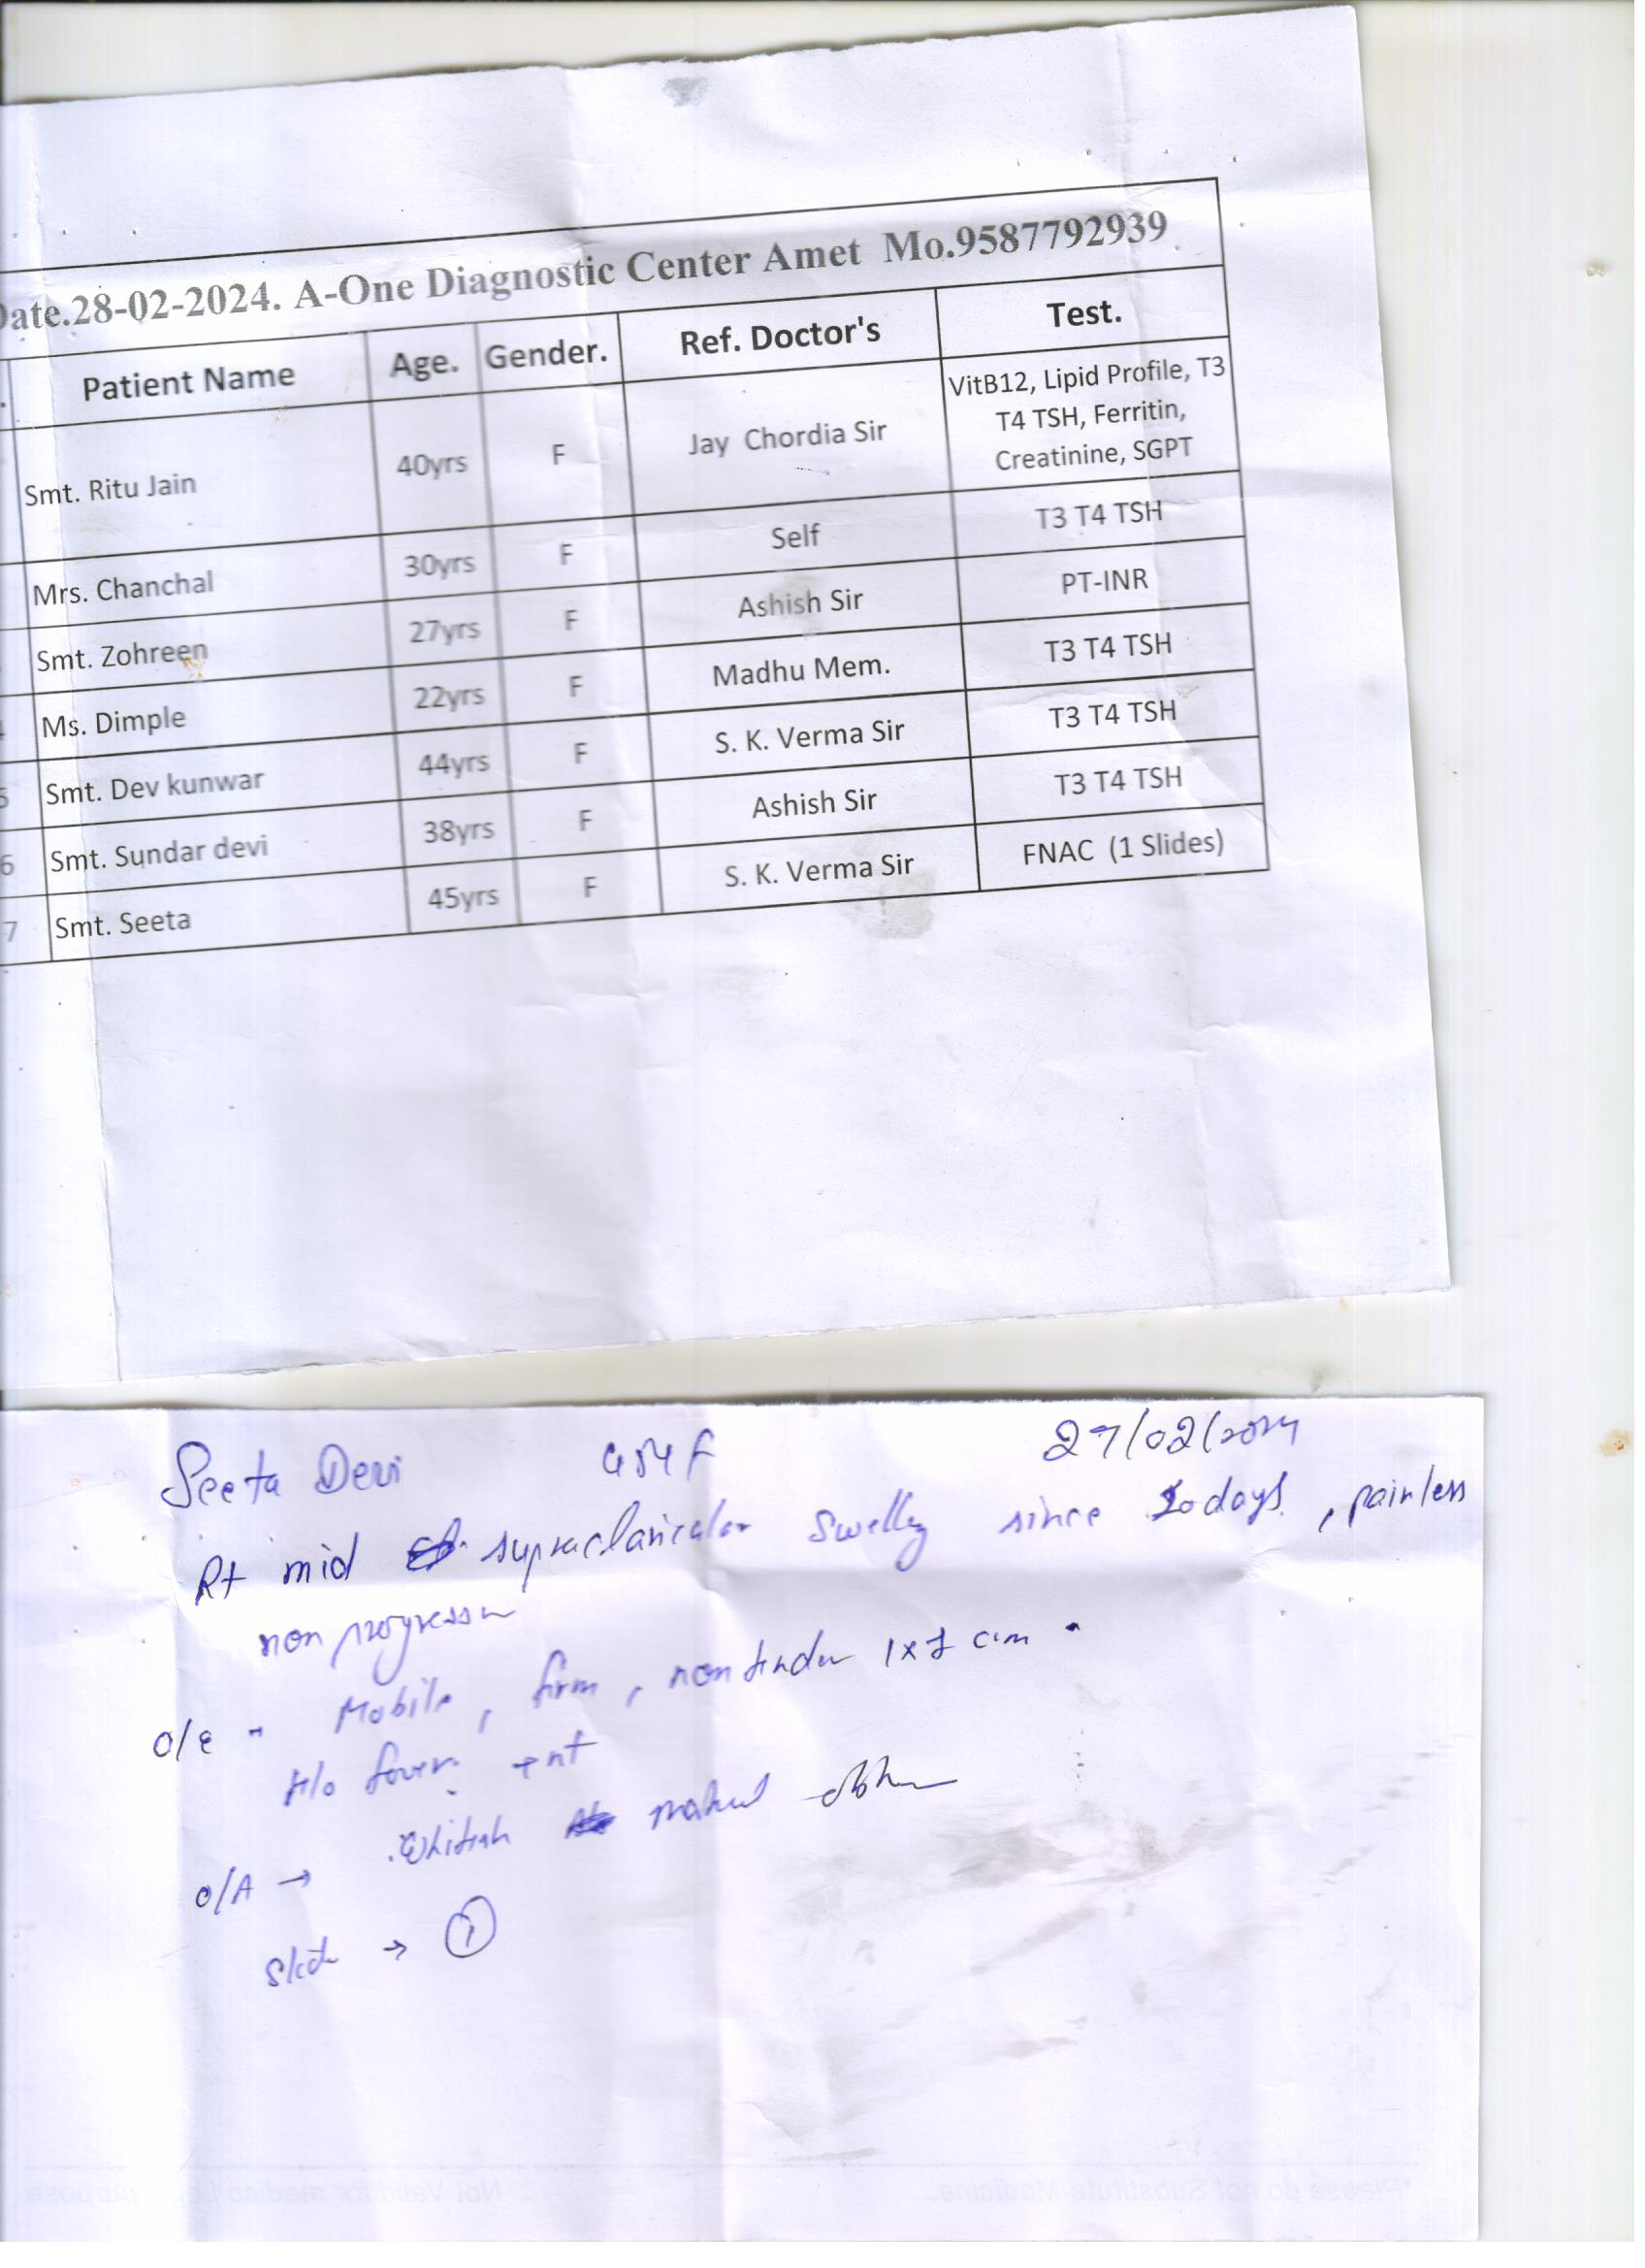 Date.28-02-2024. A-One Diagnostic Center Amet Mo.9587792939
. Patient Name Age. Gender. Ref. Doctor's Test.
Smt. Ritu Jain 40yrs F Jay Chordia Sir VitB12, Lipid Profile, T3
T4 TSH, Ferritin,
Creatinine, SGPT
Mrs. Chanchal 30yrs F Self T3 T4 TSH
Smt. Zohreen 27yrs F Ashish Sir PT-INR
Ms. Dimple 22yrs F Madhu Mem. T3 T4 TSH
5 Smt. Dev kunwar 44yrs F S. K. Verma Sir T3 T4 TSH
6 Smt. Sundar devi 38yrs F Ashish Sir T3 T4 TSH
7 Smt. Seeta 45yrs F S. K. Verma Sir FNAC (1 Slides)
Seeta Devi 27/02/2024
Rt mid supraclavicular swelling since days, painless
non progressive
O/e - Mobile, firm, non tender 1x1 cm
H/o fever +nt
O/A → Whitish
Slide → 1
*Please do not Substitute Medicine. Not Valid for medico purpose